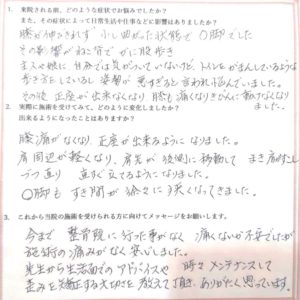 1. 来院される前、どのような症状でお悩みでしたか？
また、その症状によって日常生活や仕事などに影響はありましたか？
膝が伸びきれず 少し曲がった状態で O脚でした
その影響が ね 皆で がに股歩き
主人や娘に 自分では気がついていないけど、トイレをがまんしているような
歩き方をしている 姿勢が 悪すぎると言われ悩んでいました。
その後、正座が出来なくなり、膝も痛くなり
2. 実際に施術を受けてみて、どのように変化しましたか？
出来るようになったことはありますか？
膝痛がなくなり、正座が出来るようになりました。
肩周辺が軽くなり、肩先が後側に移動して まき肩が
づつ直り 真すぐ立てるようになりました。
O脚も すき間が徐々に狭くなってきました。
3. これから当院の施術を受けられる方に向けてメッセージをお願いします。
今まで 整骨院に行った事がなく 痛くないか不安でしたが
施術の痛みがなく安心しました。
先生から生活面でのアドバイスや 時々メンテナンスして
歪みを矯正する大切さを教えて頂き、ありがたく思っています。